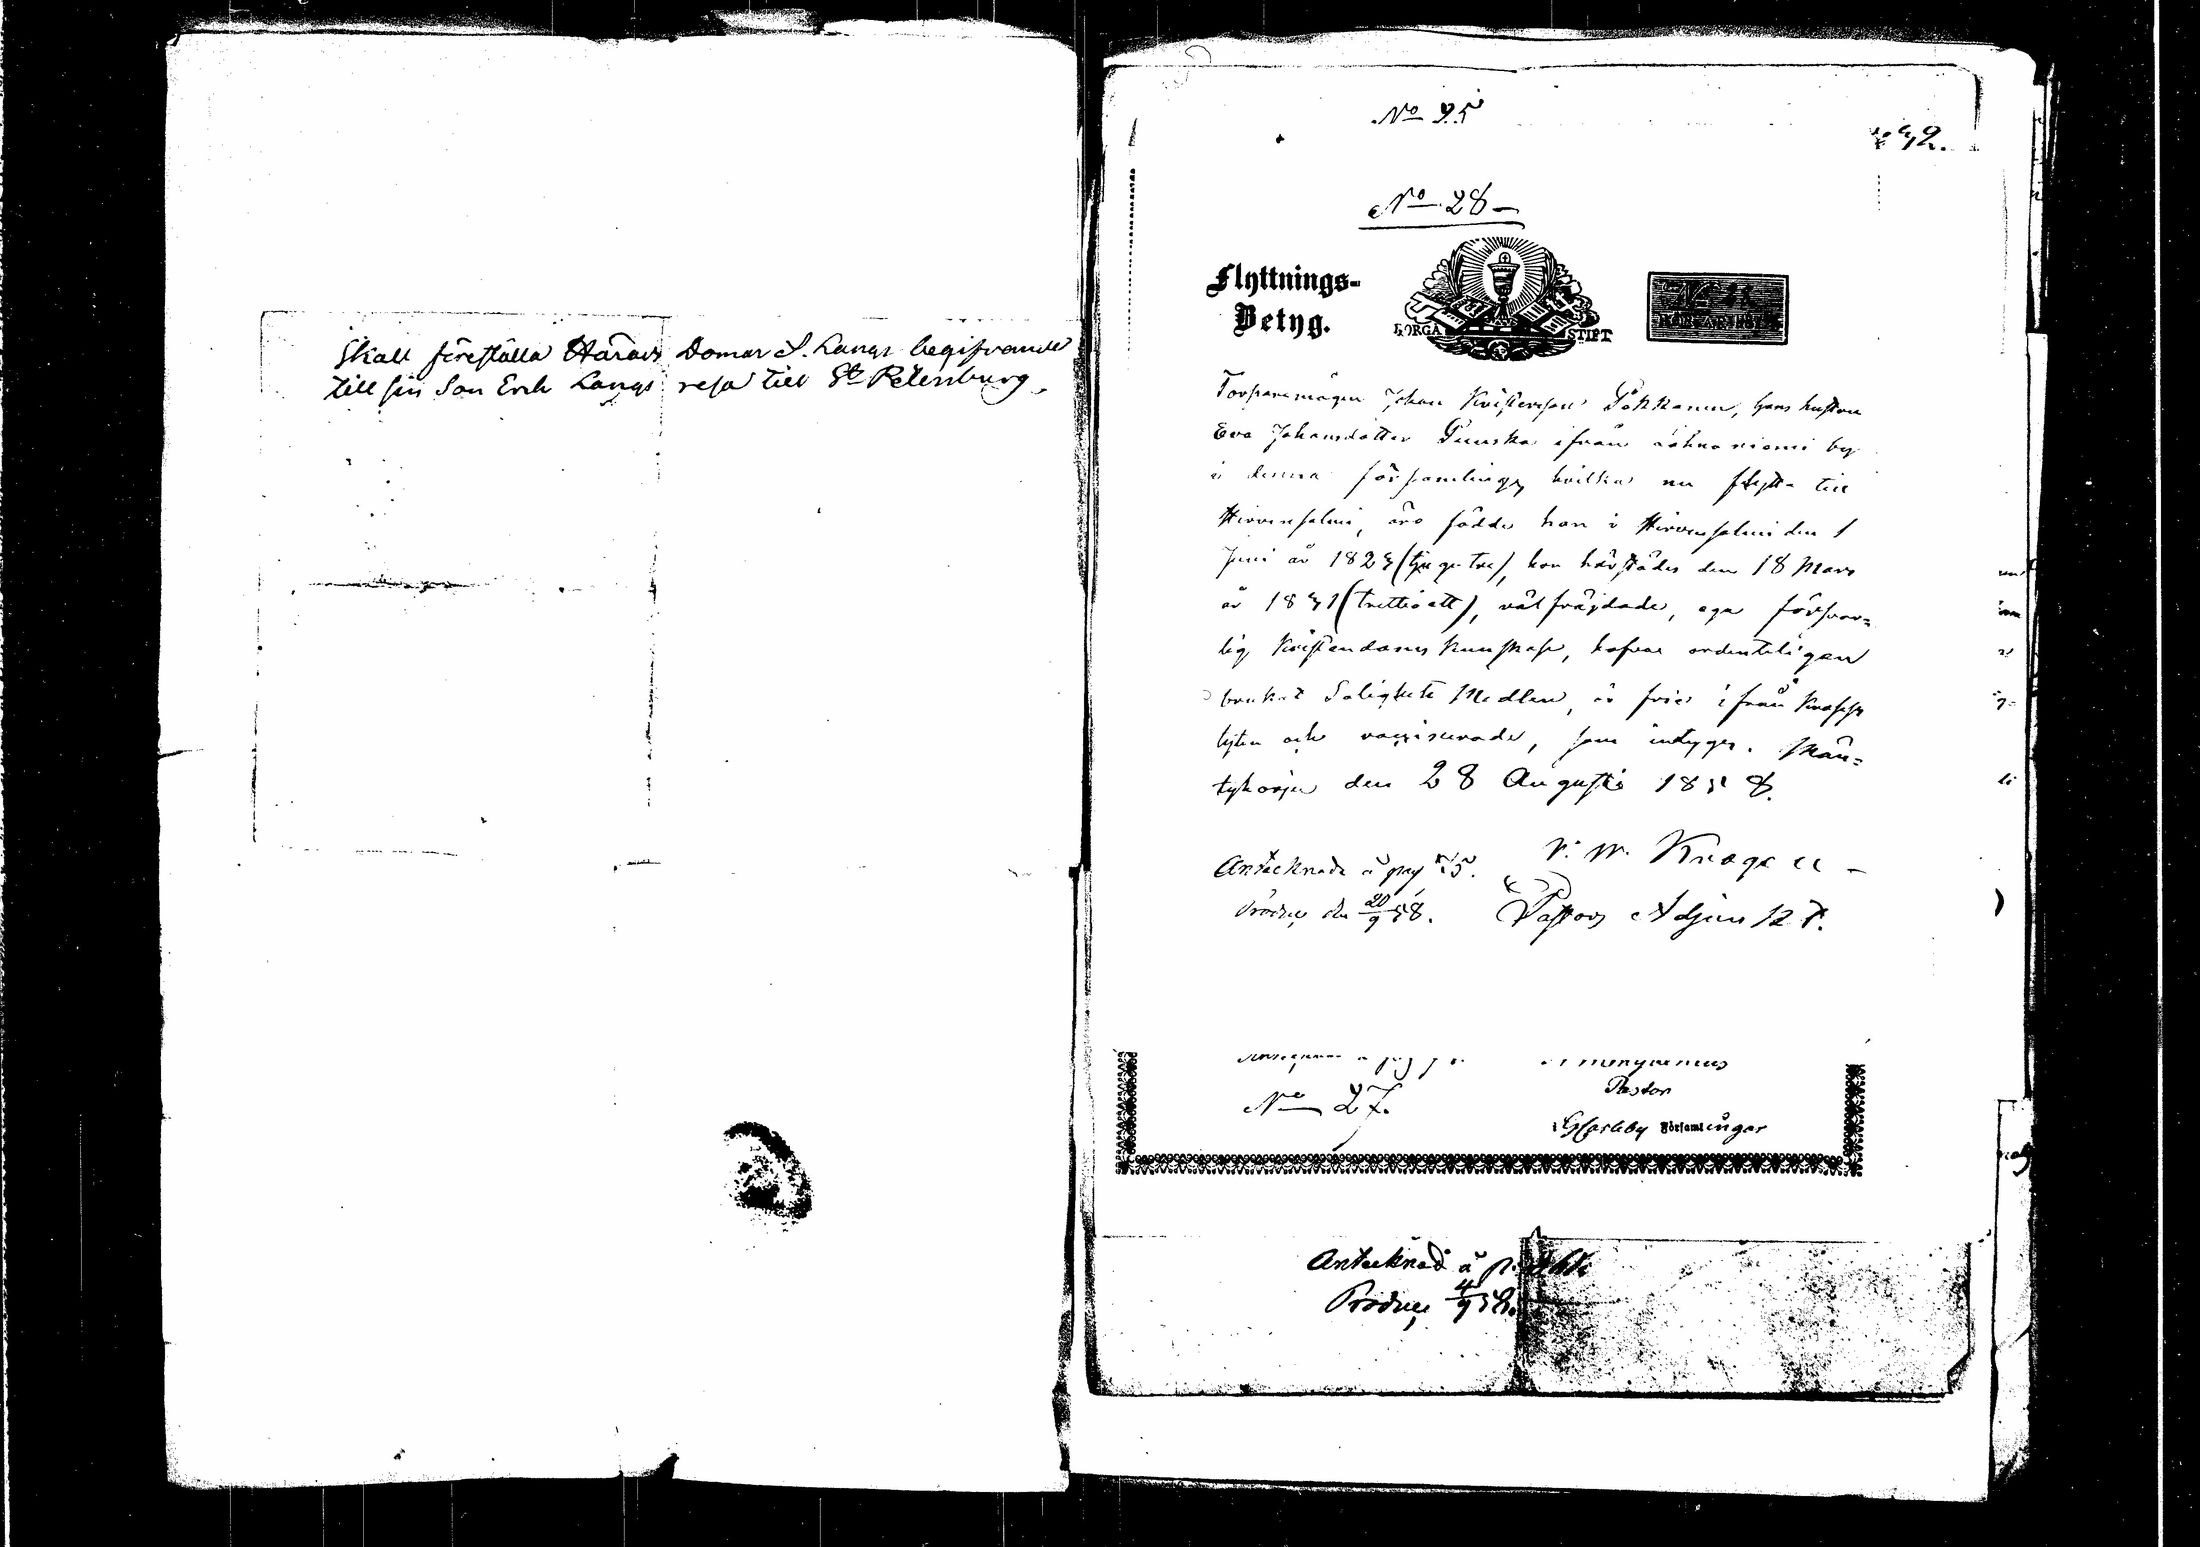 Skall föreställa Härads Domar S. Langs begifvande
till sin Son Erik Langs resa till St Petersburg.
No 95
No 28
Flyttnings-
Betyg.
BORGÅ STIFT
Torparemågen Johan Kristersson Pökkänen, hans hustru
Eva Johansdotter Puuska ifrån niemi by
i denna församling, hvilka nu flytta till
Hirvensalmi, äro födde han i Hirvensalmi den 1
Juni år 1823 (tjugutre), hon härstädes den 18 Mars
år 1831 (trettioett), välfräjdade, ega försvar-
lig Kristendoms kunskap, hafva ordenteligen
brukat Salighets Medlen, är frie ifrån kropps
lyten och vaccinerade, som intygas. Män-
tyharju den 28 Augusti 1858.
Antecknade å pag 75.
Produc den 20/9 58.
K. W. Krogerus
Pastors Adjunkt.
No 27.
Pastor
Församlingar
Antecknad å p.
Produc 4/9 58.